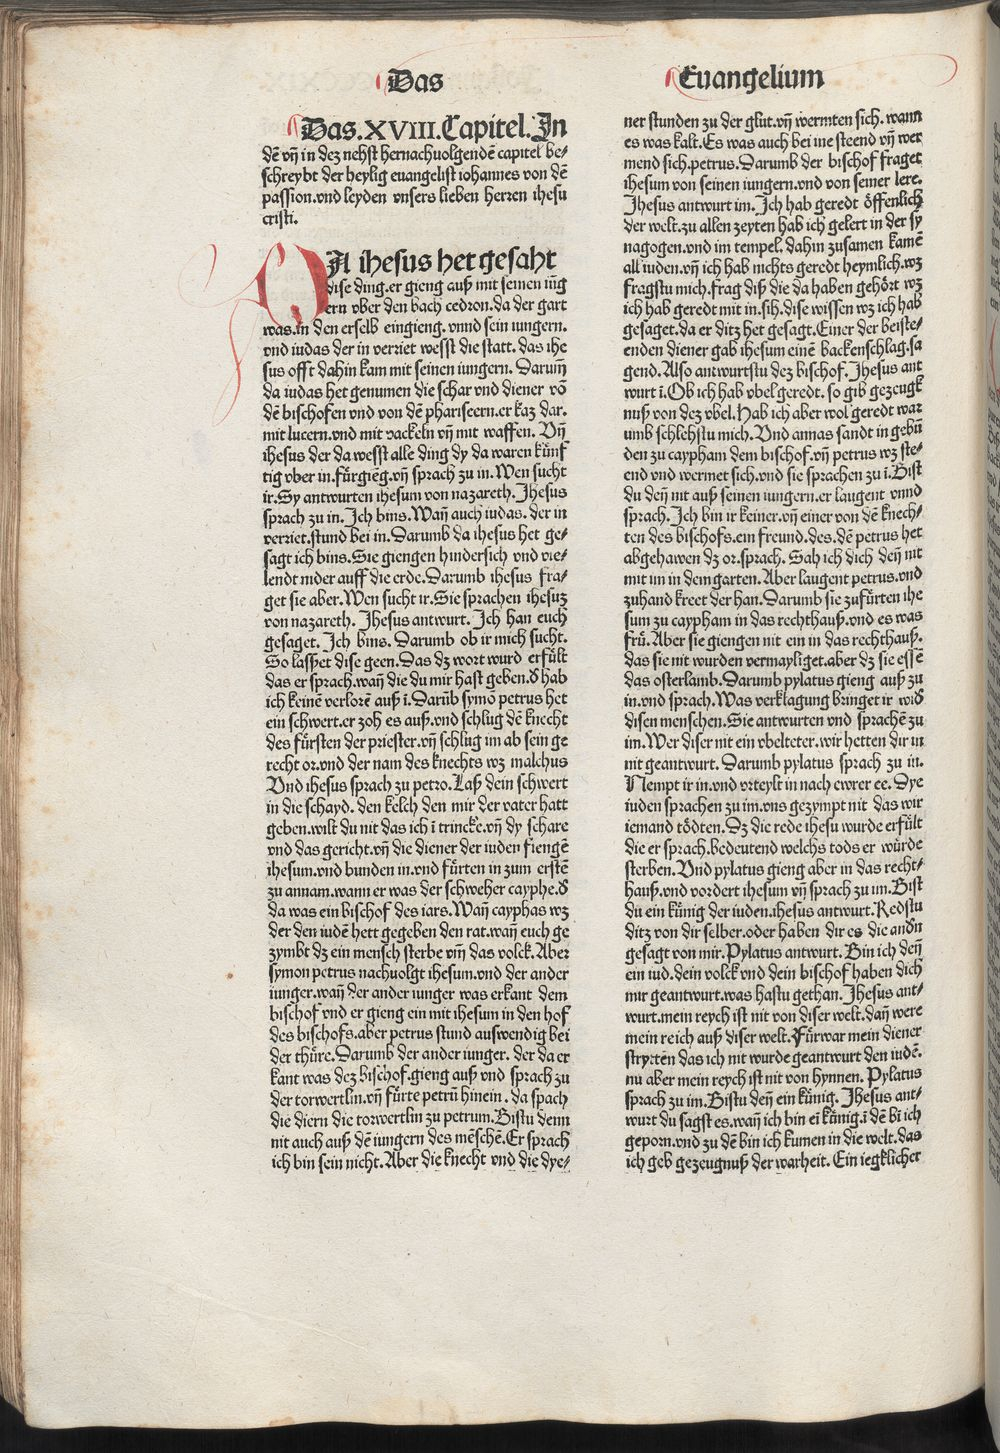 Das
Euangelium
Das.XVIII.Capitel.In
dē vn̄ in dez nehst hernachuolgendē capitel be⸗
schreybt der heylig euangelist iohannes von dē
passion.vnd leyden vnsers lieben herren ihesu
cristi.
DA ihesus het gesaht
dise ding.er gieng auß mit seinen iūg
ern vber den bach cedron.da der gart
was.in den er selb eingieng.vnnd sein iungern.
vnd iudas der in verriet wesst die statt.das ihe
sus offt dahin kam mit seinen iungern. Darum̄
da iudas het genumen die schar vnd diener vō
dē bischofen vnd von dē phariseern.er kaz dar.
mit lucern.vnd mit vackeln vn̄ mit waffen. Vn̄
ihesus der da wesst alle ding dy da waren kūnf
tig vber in.fürgiēg.vn̄ sprach zu in.Wen sucht
ir.Sy antwurten ihesum von nazareth.Jhesus
sprach zu in.Ich bins.Wan̄ auch iudas.der in
verriet.stund bei in.Darumb da ihesus het ge⸗
sagt ich bins.Sie giengen hindersich vnd vie⸗
lendt nider auff die erde.Darumb ihesus fra⸗
get sie aber.Wen sucht ir.Sie sprachen ihesuz
von nazareth. Jhesus antwurt. Ich han euch
gesaget. Ich bins. Darumb ob ir mich sucht.
So lasset dise geen.Das dz wort wurd erfült
das er sprach.wan̄ die du mir hast geben.d̄ hab
ich keinē verlorē auß ī.Darūb symō petrus het
ein schwert.er zoh es auß.vnd schlug dē knecht
des fürsten der priester.vn̄ schlug im ab sein ge
recht or.vnd der nam des knechts wz malchus
Vnd ihesus sprach zu petro.Laß dein schwert
in die schayd. den kelch den mir der vater hatt
geben.wilt du nit das ich ī trincke.vn̄ dy schare
vnd das gericht.vn̄ die diener der iuden fiengē
ihesum.vnd bunden in.vnd fürten in zum erstē
zu annam.wann er was der schweher cayphe.d̄
da was ein bischof des iars.Wan̄ cayphas wz
der den iudē hett gegeben den rat.wan̄ euch ge
zymbt dz ein mensch sterbe vm̄ das volck.Aber
symon petrus nachuolgt ihesum.vnd der ander
iunger.wan̄ der ander iunger was erkant dem
bischof vnd er gieng ein mit ihesum in den hof
des bischofs.aber petrus stund auswendig bei
der thüre.Darumb der ander iunger. der da er
kant was dez bischof.gieng auß vnd sprach zu
der torwertlin.vn̄ fürte petrū hinein. da spach
die diern die torwertlin zu petrum.Bistu denn
nit auch auß dē iungern des mēschē.Er sprach
ich bin sein nicht.Aber die knecht vnd die dye⸗
ner stunden zu der glut.vn̄ wermten sich.wann
es was kalt.Es was auch bei ine steend vn̄ wer
mend sich.petrus.Darumb der bischof fraget
ihesum von seinen iungern.vnd von seiner lere.
Jhesus antwurt im.Ich hab geredt öffenlich
der welt.zu allen zeyten hab ich gelert in der sy
nagogen.vnd im tempel. dahin zusamen kamē
all iuden.vn̄ ich hab nichts geredt heymlich.wz
fragstu mich.frag diß die da haben gehört wz
ich hab geredt mit in.sih.dise wissen wz ich hab
gesaget.da er ditz het gesagt.Einer der beiste⸗
enden diener gab ihesum einē backenschlag.sa
gend.Also antwurtstu dez bischof.Jhesus ant
wurt ī.Ob ich hab vbel geredt.so gib gezeugk
nuß von dez vbel.Hab ich aber wol geredt war
umb schlehstu mich.Vnd annas sandt in gebū
den zu caypham dem bischof.vn̄ petrus wz ste⸗
end vnd wermet sich.vnd sie sprachen zu ī.Bist
du den̄ nit auß seinen iungern.er laugent vnnd
sprach.Ich bin ir keiner.vn̄ einer von dē knech⸗
ten des bischofs.ein freund.des.dē petrus het
abgehawen dz or.sprach. Sah ich dich den̄ nit
mit im in dem garten.Aber laugent petrus.vnd
zuhand kreet der han.Darumb sie zufürten ihe
sum zu caypham in das rechthauß.vnd es was
frü.Aber sie giengen nit ein in das rechthauß.
das sie nit wurden vermayliget.aber dz sie essē
das osterlamb.Darumb pylatus gieng auß zu
in.vnd sprach.Was verklagung bringet ir wid̄
disen menschen.Sie antwurten vnd sprachē zu
im.Wer diser nit ein vbelteter.wir hetten dir in
nit geantwurt. Darumb pylatus sprach zu in.
Nempt ir in.vnd vrteylt in nach ewrer ee. Dye
iuden sprachen zu im.vns gezympt nit das wir
iemand tödten.Dz die rede ihesu wurde erfült
die er sprach.bedeutend welchs tods er würde
sterben.Vnd pylatus gieng aber in das recht⸗
hauß.vnd vordert ihesum vn̄ sprach zu im.Bist
du ein künig der iuden.ihesus antwurt.Redstu
ditz von dir selber.oder haben dir es die andn̄
gesagt von mir.Pylatus antwurt. Bin ich den̄
ein iud.dein volck vnd dein bischof haben dich
mir geantwurt.was hastu gethan. Jhesus ant⸗
wurt.mein reych ist nit von diser welt.dan̄ were
mein reich auß diser welt.Fürwar mein diener
stryrten das ich nit wurde geantwurt den iudē.
nu aber mein reych ist nit von hynnen. Pylatus
sprach zu im.Bistu den̄ ein künig. Jhesus ant⸗
wurt du sagst es.wan̄ ich bin ei künig.ī dē bī ich
geporn.vnd zu dē bin ich kumen in die welt.das
ich geb gezeugnuß der warheit. Ein iegklicher